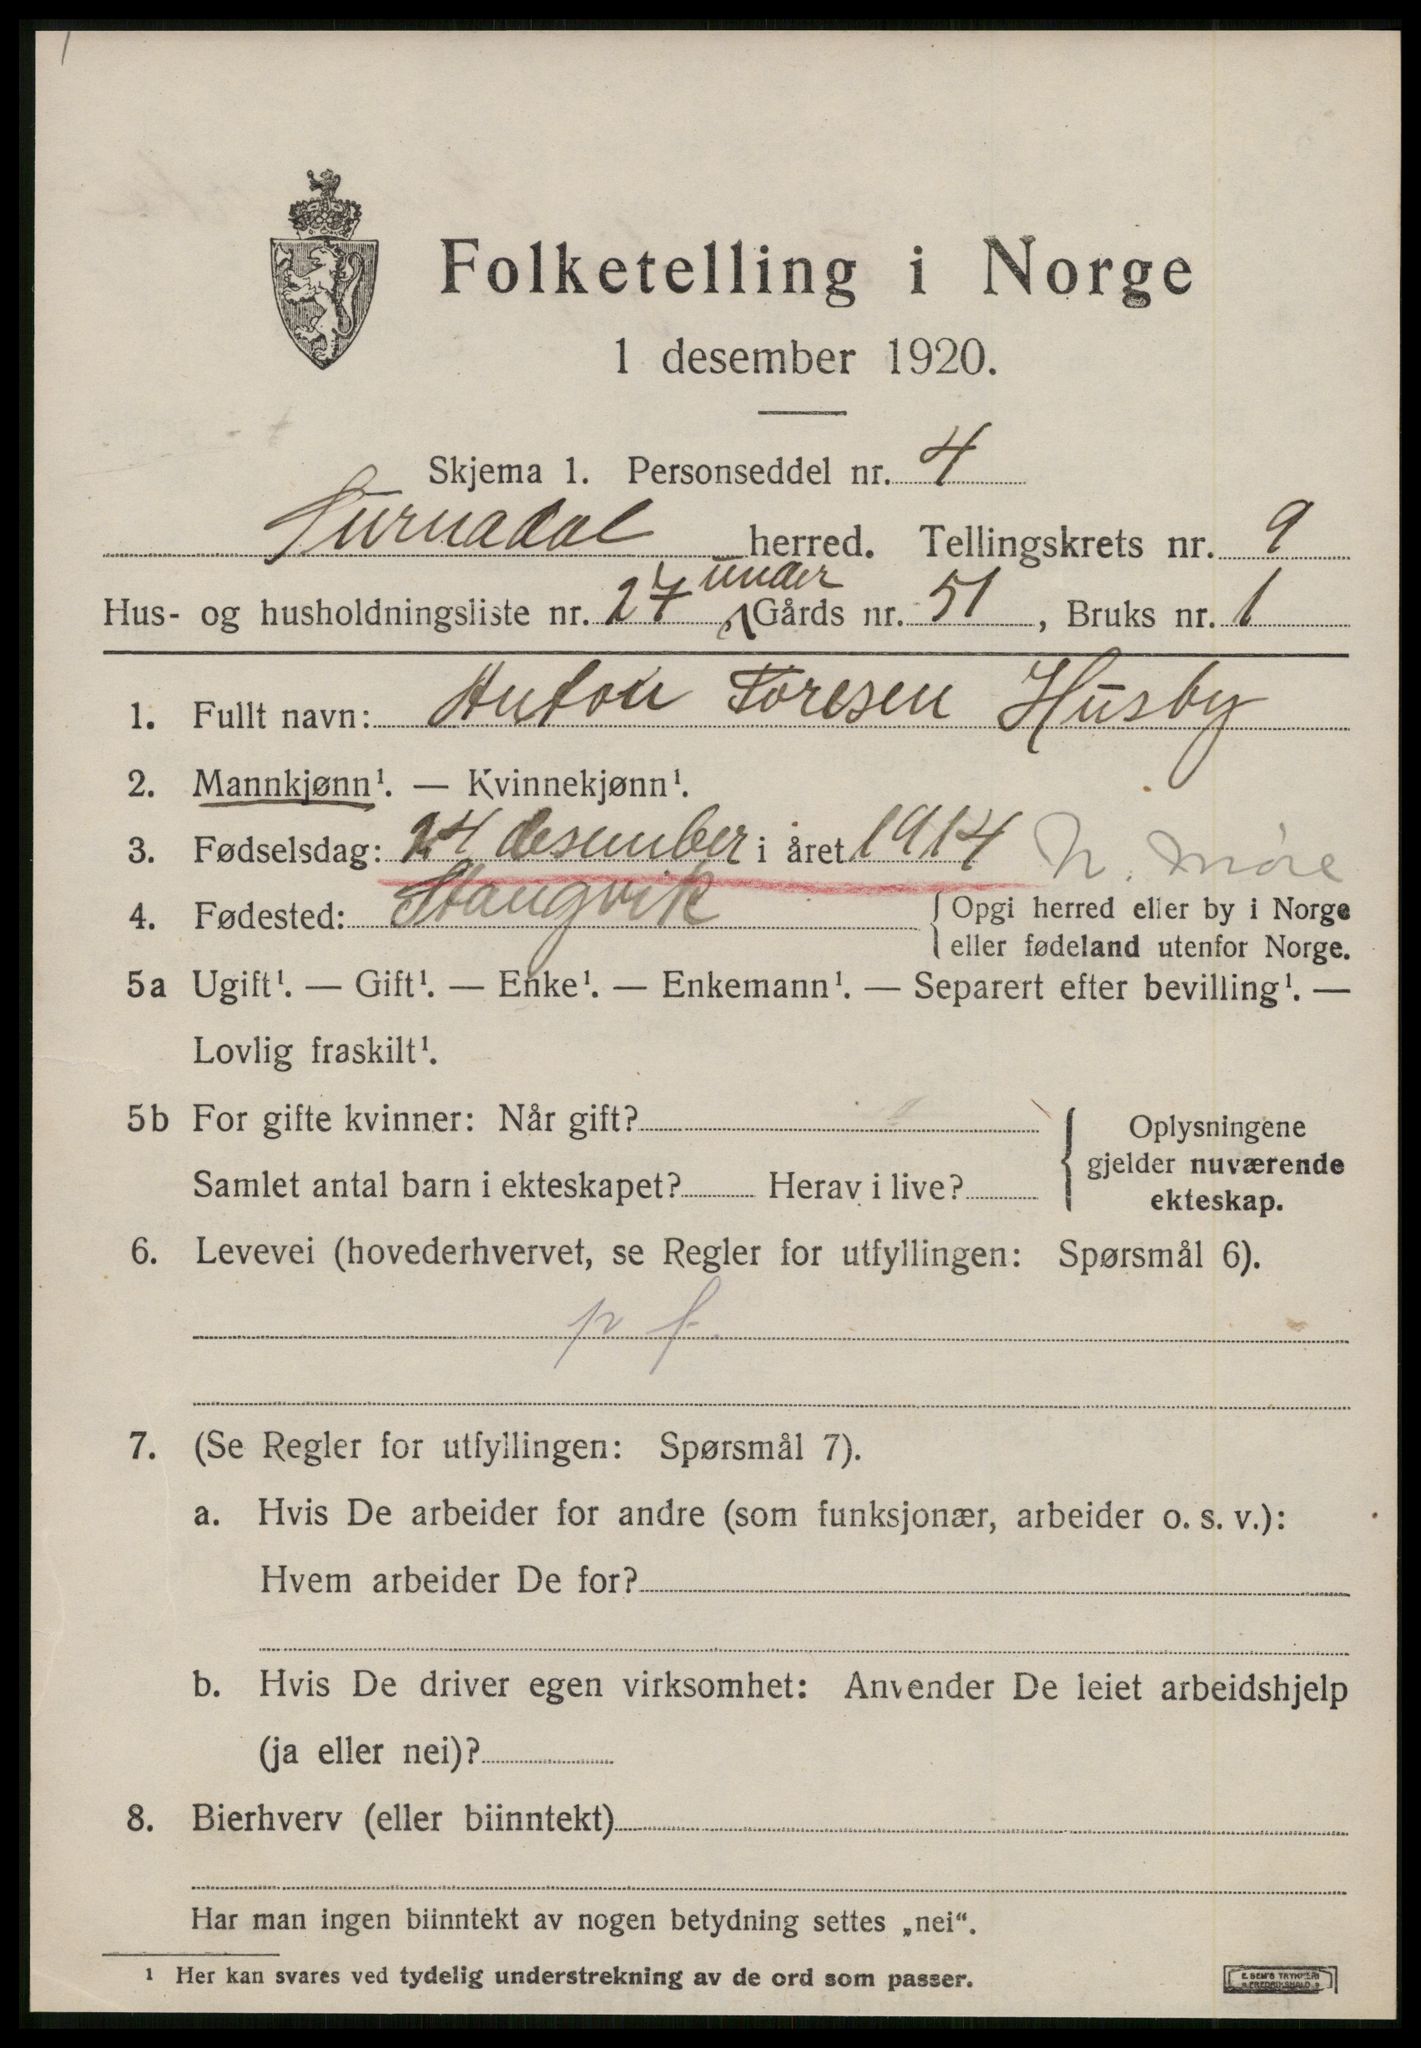 Folketelling i Norge
1 desember 1920.
Skjema 1. Personseddel nr. 4
Surnadal herred. Tellingskrets nr. 9
under
Hus- og husholdningsliste nr. 27 Gårds nr. 51, Bruks nr. 1
1. Fullt navn: Anton Toresen Husby
2. Mannkjønn¹. — Kvinnekjønn¹.
3. Fødselsdag: 24 desember i året 1914 N. Møre
4. Fødested: Stangvik { Opgi herred eller by i Norge
eller fødeland utenfor Norge.
5a Ugift¹. — Gift¹. — Enke¹. — Enkemann¹. — Separert efter bevilling¹. —
Lovlig fraskilt¹.
5b For gifte kvinner: Når gift?
Samlet antal barn i ekteskapet? Herav i live?
{ Oplysningene
gjelder nuværende
ekteskap.
6. Levevei (hovederhvervet, se Regler for utfyllingen: Spørsmål 6).
p f.
7. (Se Regler for utfyllingen: Spørsmål 7).
a. Hvis De arbeider for andre (som funksjonær, arbeider o. s. v.):
Hvem arbeider De for?
b. Hvis De driver egen virksomhet: Anvender De leiet arbeidshjelp
(ja eller nei)?
8. Bierhverv (eller biinntekt)
Har man ingen biinntekt av nogen betydning settes „nei“.
¹ Her kan svares ved tydelig understrekning av de ord som passer.
E. SEM'S TRYKKERI
FREDRIKSHALD